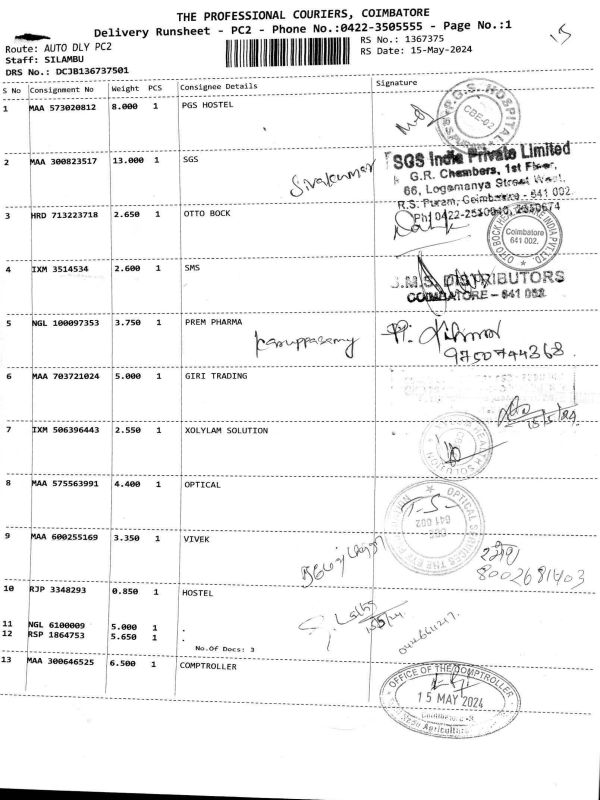 THE PROFESSIONAL COURIERS, COIMBATORE
Delivery Runsheet - PC2 - Phone No.:0422-3505555 - Page No.:1
Route: AUTO DLY PC2
Staff: SILAMBU
DRS No.: DCJB136737501
RS No.: 1367375
RS Date: 15-May-2024
15
S No Consignment No Weight PCS Consignee Details Signature
1 MAA 573020812 8.000 1 PGS HOSTEL
P.G.S. HOSPITAL
CBE-02
2 MAA 300823517 13.000 1 SGS
Sivakumar
SGS India Private Limited
G.R. Chambers, 1st Floor,
66, Logamanya Street West,
R.S. Puram, Coimbatore - 641 002.
3 HRD 713223718 2.650 1 OTTO BOCK
Coimbatore
641 002.
4 IXM 3514534 2.600 1 SMS
S.M.S. DISTRIBUTORS
COIMBATORE - 641 002
5 NGL 100097353 3.750 1 PREM PHARMA
Karuppasamy
9750744368
6 MAA 703721024 5.000 1 GIRI TRADING
15/5/24
7 IXM 506396443 2.550 1 XOLYLAM SOLUTION
8 MAA 575563991 4.400 1 OPTICAL
T-S-
CBE
641 002
9 MAA 600255169 3.350 1 VIVEK
8002681403
10 RJP 3348293 0.850 1 HOSTEL
11 NGL 6100009 5.000 1 .
12 RSP 1864753 5.650 1 .
No.Of Docs: 3
13 MAA 300646525 6.500 1 COMPTROLLER
OFFICE OF THE COMPTROLLER
15 MAY 2024